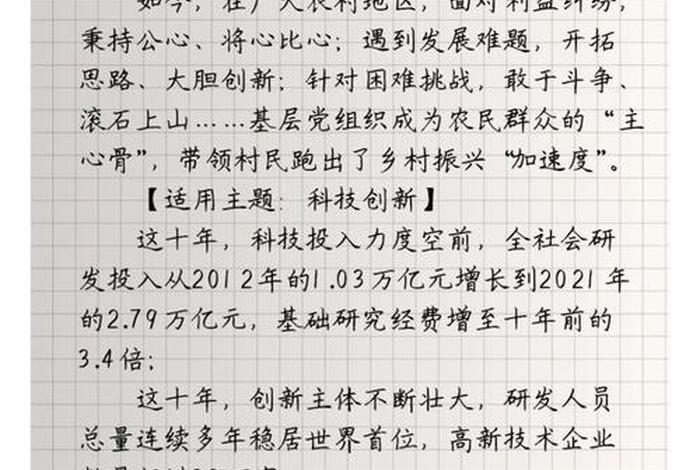 如今，在广大农村地区，面对利益纠纷，
秉持公心、将心比心；遇到发展难题，开拓
思路、大胆创新；针对困难挑战，敢于斗争、
滚石上山……基层党组织成为农民群众的“主
心骨”，带领村民跑出了乡村振兴“加速度”。
【适用主题：科技创新】
这十年，科技投入力度空前，全社会研
发投入从2012年的1.03万亿元增长到2021年
的2.79万亿元，基础研究经费增至十年前的
3.4倍；
这十年，创新主体不断壮大，研发人员
总量连续多年稳居世界首位，高新技术企业